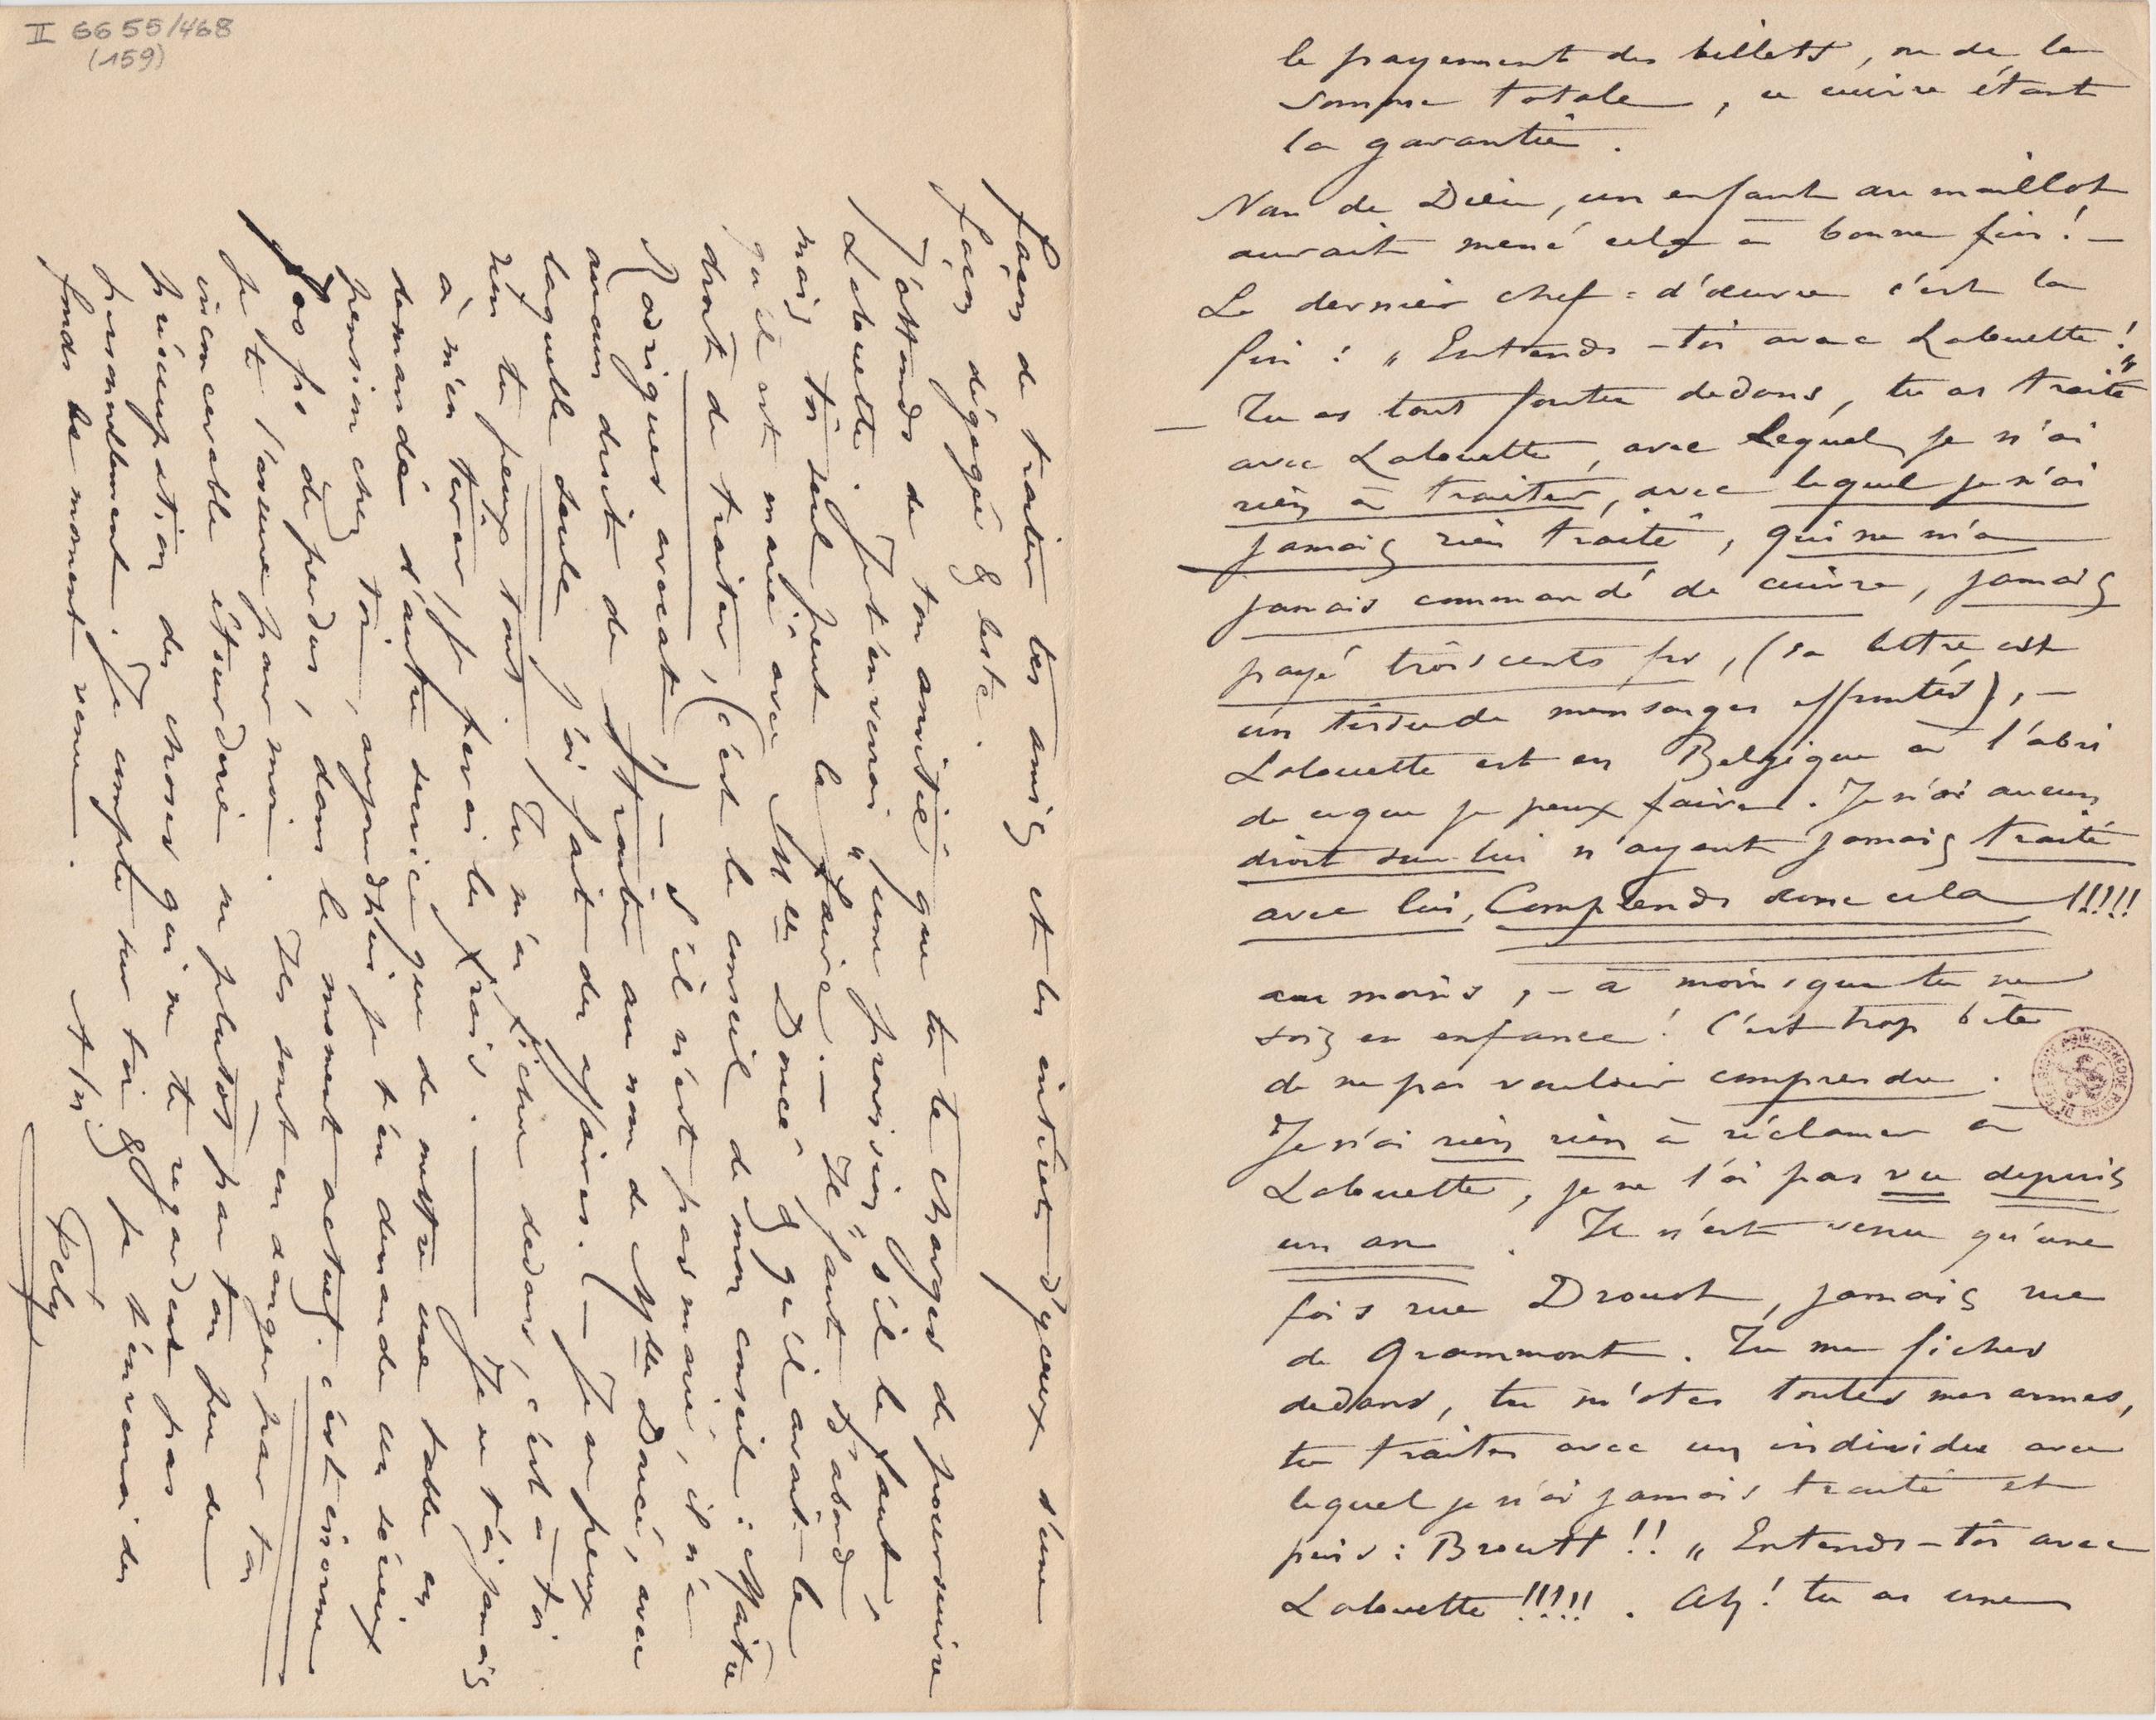 II 6655/468
(159)
le payement des billets, ou de la
somme totale, ce cuivre étant
la garantie.
Nom de Dieu, un enfant au maillot
aurait mené cela à bonne fin! –
Le dernier chef = d'œuvre c'est la
fin : „ Entends-toi avec Lalouette! "
– Tu as tout foutu dedans, tu as traité
avec Lalouette, avec lequel je n'ai
rien à traiter, avec lequel je n'ai
jamais rien traité, qui ne m'a
jamais commandé de cuivre, jamais
payé trois cents frs, (sa lettre est
un tissu de mensonges effrontés), –
Lalouette est en Belgique à l'abri
de ce que je peux faire. Je n'ai aucun
droit sur lui n'ayant jamais traité
avec lui, Comprends donc cela !!!!!
au moins, – à moins que tu ne
sois en enfance! C'est trop bête
de ne pas vouloir comprendre.
Je n'ai rien rien à réclamer à
Lalouette, je ne l'ai pas vu depuis
un an. Il n'est venu qu'une
fois rue Drouot, jamais rue
de Grammont. Tu me fiches
dedans, tu m'otes toutes mes armes,
tu traites avec un individu avec
lequel je n'ai jamais traité et
puis : Broutt!! „ Entends-toi avec
Lalouette !!!!! . Ah! tu as une
façon de traiter tes amis et les intérêts d'yceux d'une
façon dégagée & leste.
J'attends de ton amitié que tu te charges de poursuivre
Lalouette. Je t'enverrai „ une provision s'il le faut,
mais toi seul peut la faire. – Il faut d'abord
qu'il est marié avec Mlle Doucé & qu'il avait le
droit de traiter, (c'est le conseil de mon conseil : Maître
Rodrigues avocat,) – S'il n'est pas marié, il n'a
aucun droit de traiter au nom de Mlle Doucé, avec
laquelle seule j'ai fait des affaires. – Je ne peux
rien tu peux tout. Tu m'as fichu dedans, c'est à toi
à m'en tirer, je ferai les frais. — Je ne t'ai jamais
demandé d'autre service que de mettre une table en
pension chez toi, aujourdhui je t'en demande un sérieux
900 frs de perdus, dans le moment actuel. c'est énorme
je te l'assure pour moi. Ils sont en danger par ton
inconcevable étourderie ou plutôt par ton peu de
préoccupation des choses qui ne te regardent pas
personnellement. Je compte sur toi & je t'enverrai des
fonds le moment venu.
A toi
Fély